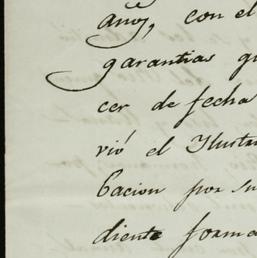 años, con el
garantias qu
cer de fecha
vió el Ilustr
bacion por su
diente forma